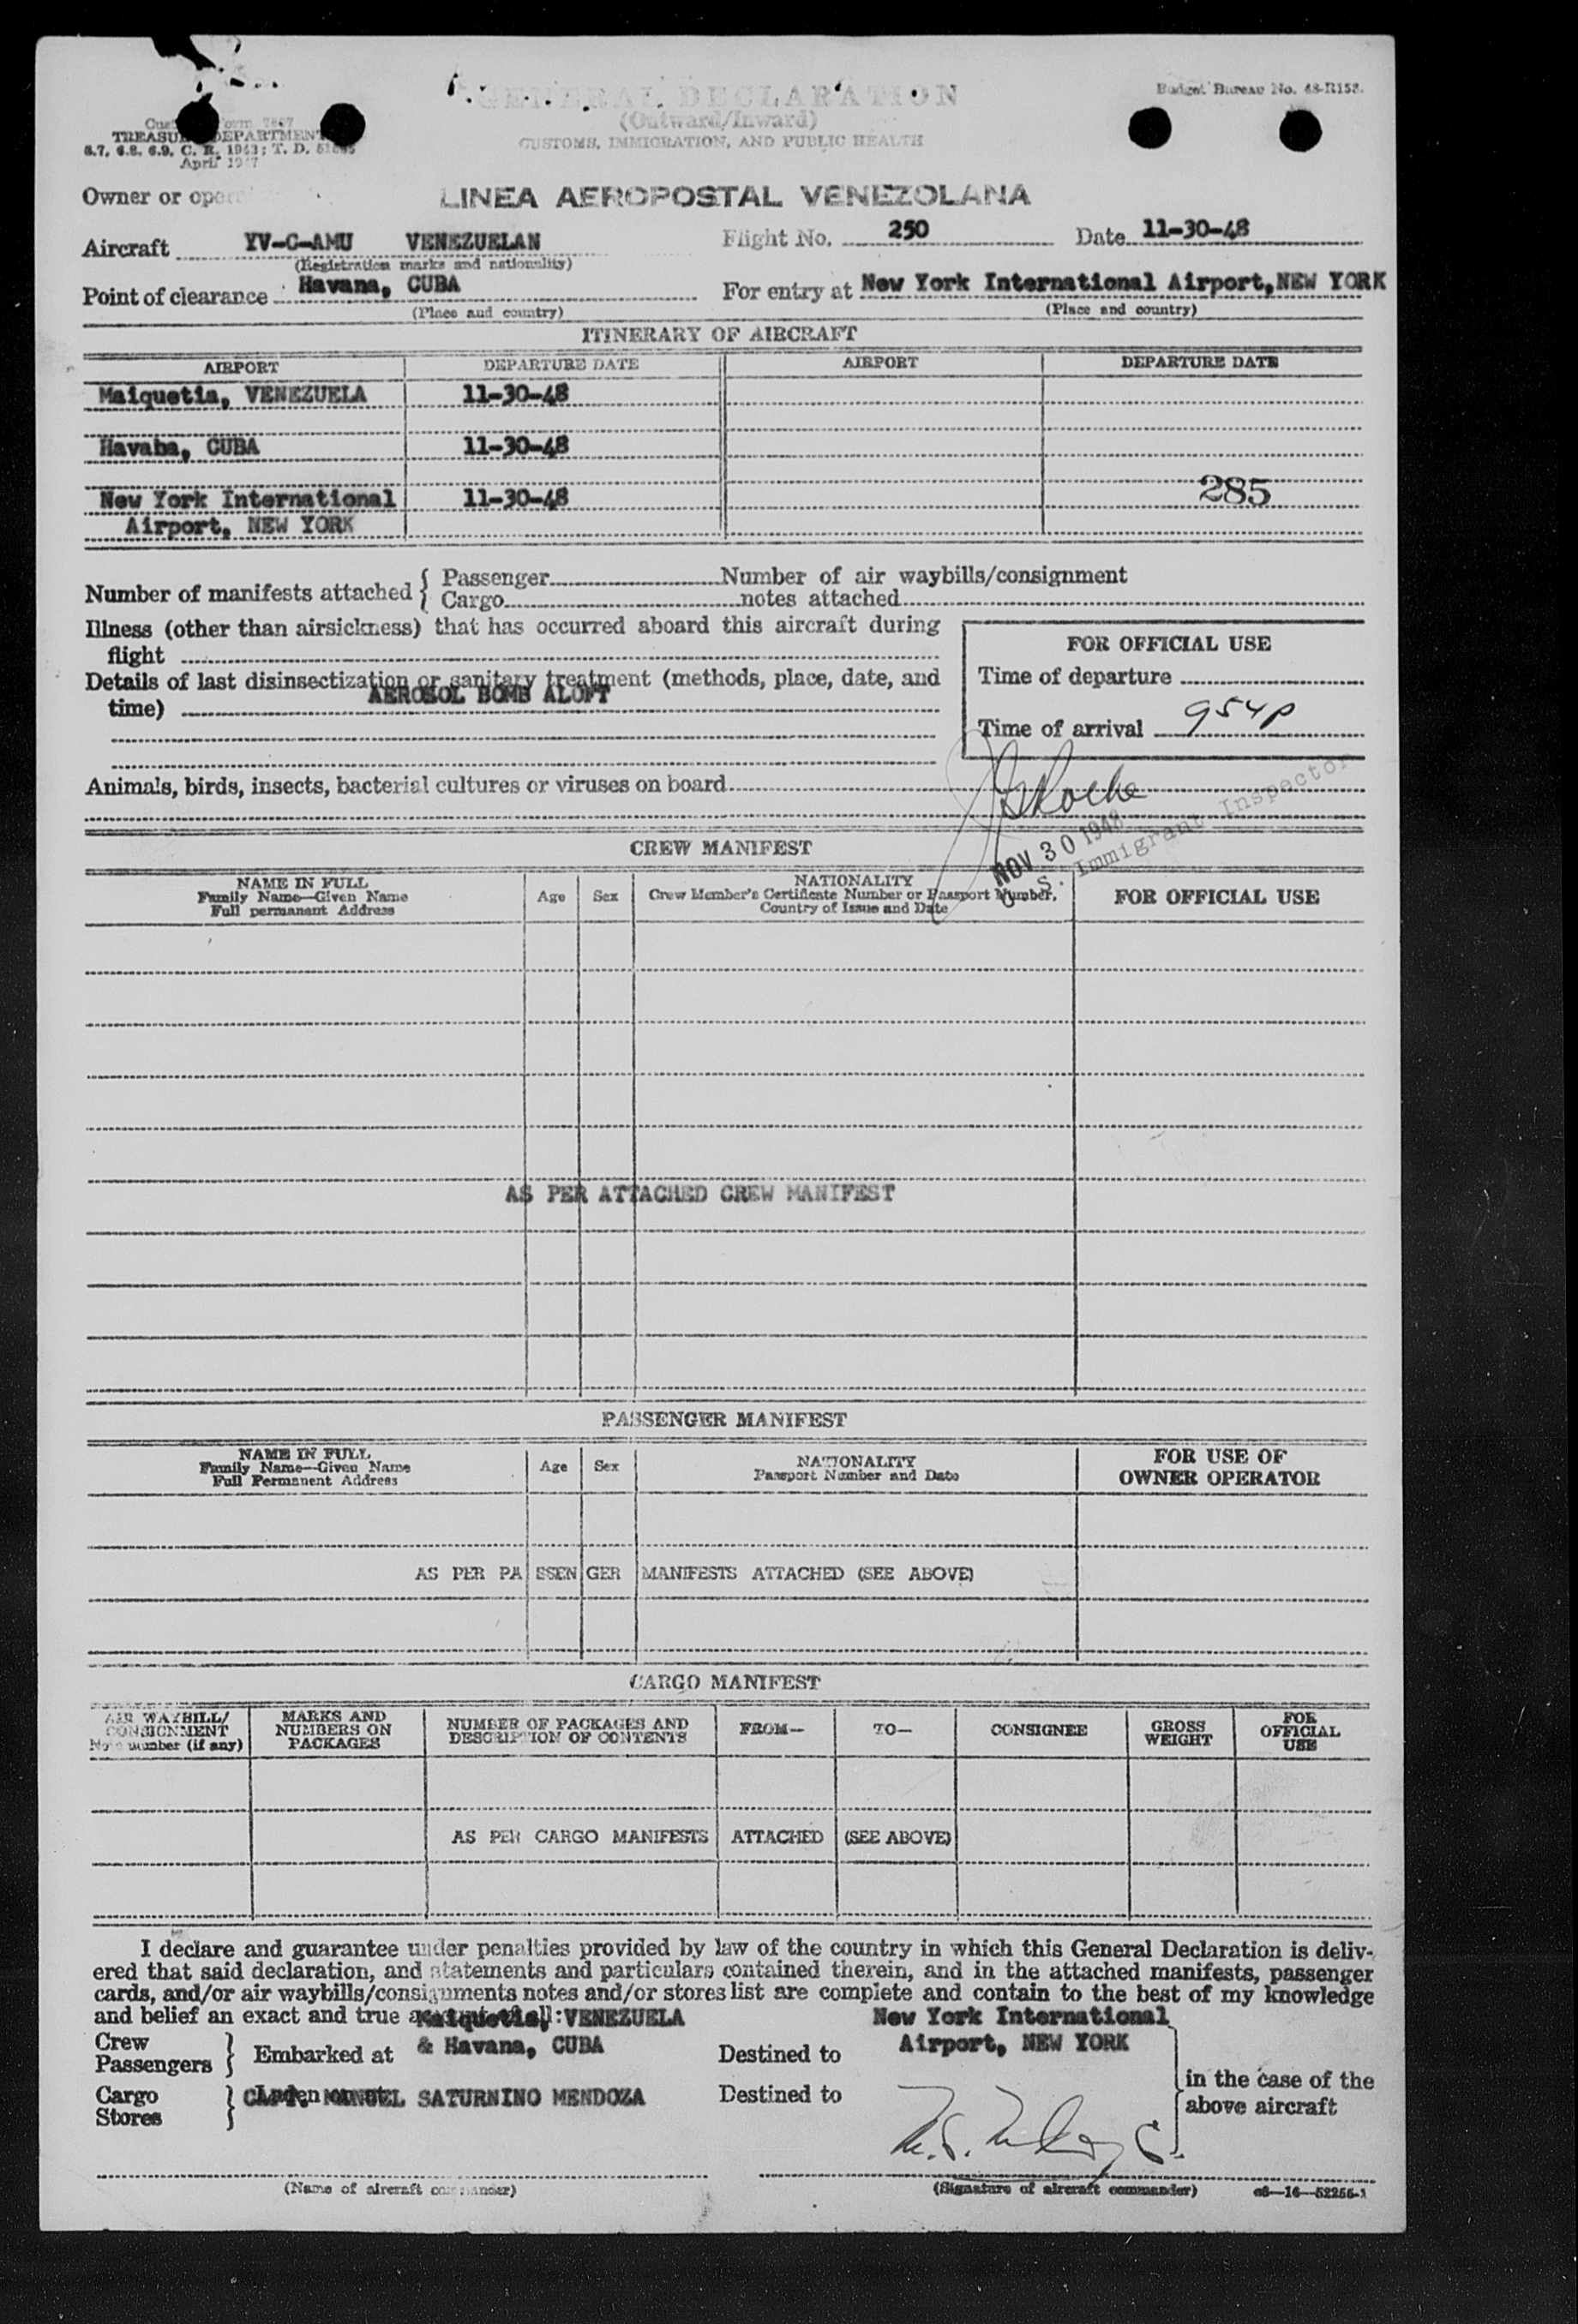 GENERAL DECLARATION
(Outward/Inward)
CUSTOMS, IMMIGRATION, AND PUBLIC HEALTH
Budget Bureau No.
TREASURY DEPARTMENT
6.7, 6.8, 6.9, C. R. 1943; T. D.
April 1947
Owner or
LINEA AEROPOSTAL VENEZOLANA
Aircraft YV-C-AMU VENEZUELAN Flight No. 250 Date 11-30-48
(Registration marks and nationality)
Point of clearance Havana, CUBA For entry at New York International Airport, NEW YORK
(Place and country) (Place and country)
ITINERARY OF AIRCRAFT
AIRPORT DEPARTURE DATE AIRPORT DEPARTURE DATE
Maiquetia, VENEZUELA 11-30-48
Havaba, CUBA 11-30-48
New York International 11-30-48 285
Airport, NEW YORK
Number of manifests attached { Passenger Number of air waybills/consignment
Cargo notes attached
Illness (other than airsickness) that has occurred aboard this aircraft during
flight
Details of last disinsectization or sanitary treatment (methods, place, date, and
time) AEROSOL BOMB ALOFT
FOR OFFICIAL USE
Time of departure
Time of arrival 954p
Animals, birds, insects, bacterial cultures or viruses on board
NOV 30 1948
U. S. Immigrant Inspector
CREW MANIFEST
NAME IN FULL
Family Name—Given Name
Full permanent Address
Age Sex
NATIONALITY
Crew Member's Certificate Number or Passport Number,
Country of Issue and Date
FOR OFFICIAL USE
AS PER ATTACHED CREW MANIFEST
PASSENGER MANIFEST
NAME IN FULL
Family Name—Given Name
Full Permanent Address
Age Sex
NATIONALITY
Passport Number and Date
FOR USE OF
OWNER OPERATOR
AS PER PASSENGER MANIFESTS ATTACHED (SEE ABOVE)
CARGO MANIFEST
AIR WAYBILL/
CONSIGNMENT
Note number (if any)
MARKS AND
NUMBERS ON
PACKAGES
NUMBER OF PACKAGES AND
DESCRIPTION OF CONTENTS
FROM—
TO—
CONSIGNEE
GROSS
WEIGHT
FOR
OFFICIAL
USE
AS PER CARGO MANIFESTS ATTACHED (SEE ABOVE)
I declare and guarantee under penalties provided by law of the country in which this General Declaration is deliv-
ered that said declaration, and statements and particulars contained therein, and in the attached manifests, passenger
cards, and/or air waybills/consignments notes and/or stores list are complete and contain to the best of my knowledge
and belief an exact and true
Maiquetia, VENEZUELA New York International
Crew
Passengers } Embarked at & Havana, CUBA Destined to Airport, NEW YORK
Cargo
Stores } CAPT. MANUEL SATURNINO MENDOZA Destined to
in the case of the
above aircraft
(Name of aircraft commander) (Signature of aircraft commander) 16—52256-1